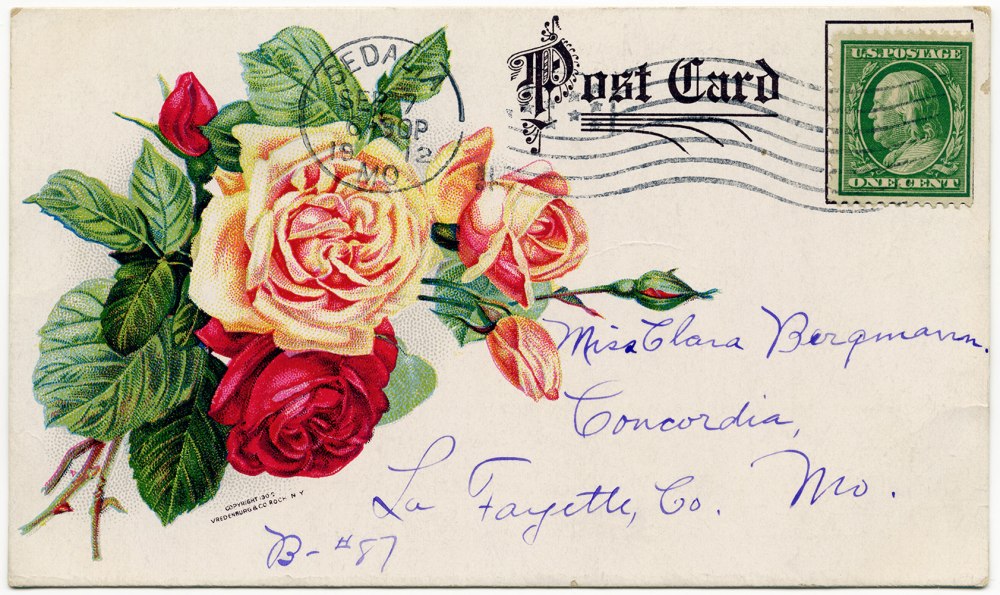 Post Card
U.S. POSTAGE
ONE CENT
SEDALIA
SEP 7
6 30P
19 12
MO.
Miss Clara Bergmann.
Concordia,
La Fayette, Co. Mo.
B-#87
COPYRIGHT 190
VREDENBURG & CO. ROCH. N.Y.